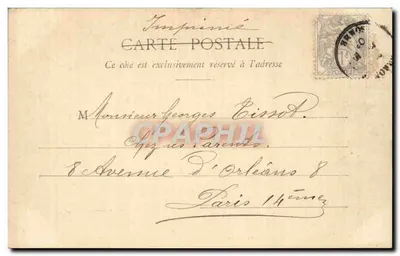 Imprimé
CARTE POSTALE
Ce côté est exclusivement réservé à l'adresse
Monsieur Georges Tissot
Chez ses Parents
8 Avenue d'Orléans 8
Paris 14ème
CPAPHIL